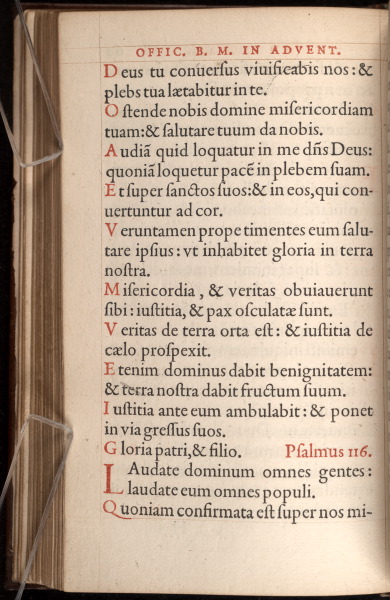 OFFIC. B. M. IN ADVENT.
Deus tu conuerſus viuificabis nos: &
plebs tua lætabitur in te.
Oſtende nobis domine miſericordiam
tuam: & ſalutare tuum da nobis.
Audiã quid loquatur in me dñs Deus:
quoniã loquetur pacẽ in plebem ſuam.
Et ſuper ſanctos ſuos: & in eos, qui con-
uertuntur ad cor.
Veruntamen prope timentes eum ſalu-
tare ipſius: vt inhabitet gloria in terra
noſtra.
Miſericordia, & veritas obuiauerunt
ſibi: iuſtitia, & pax oſculatæ ſunt.
Veritas de terra orta eſt: & iuſtitia de
cælo proſpexit.
Etenim dominus dabit benignitatem:
& terra noſtra dabit fructum ſuum.
Iuſtitia ante eum ambulabit: & ponet
in via greſſus ſuos.
Gloria patri, & filio. Pſalmus 116.
LAudate dominum omnes gentes:
laudate eum omnes populi.
Quoniam confirmata eſt ſuper nos mi-